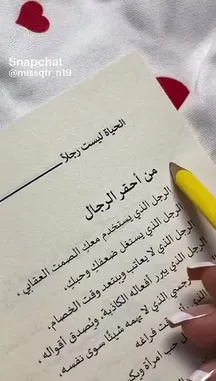 Snapchat
@missqtr_n19
الحياة ليست رجلاً
من أحقر الرجال
الرجل الذي يستخدم معكِ الصمت العقابي ،
الرجل الذي يستغل ضعفك وحبكِ،
الرجل الذي لا يعاتب ويبتعد وقت الخصام ،
الرجل الذي يبرر أفعاله الكاذبة. ويُصدق أقواله ،
الذي لا يهمه شيئًا سوى نفسه،
وقت فراغه
حب امرأة